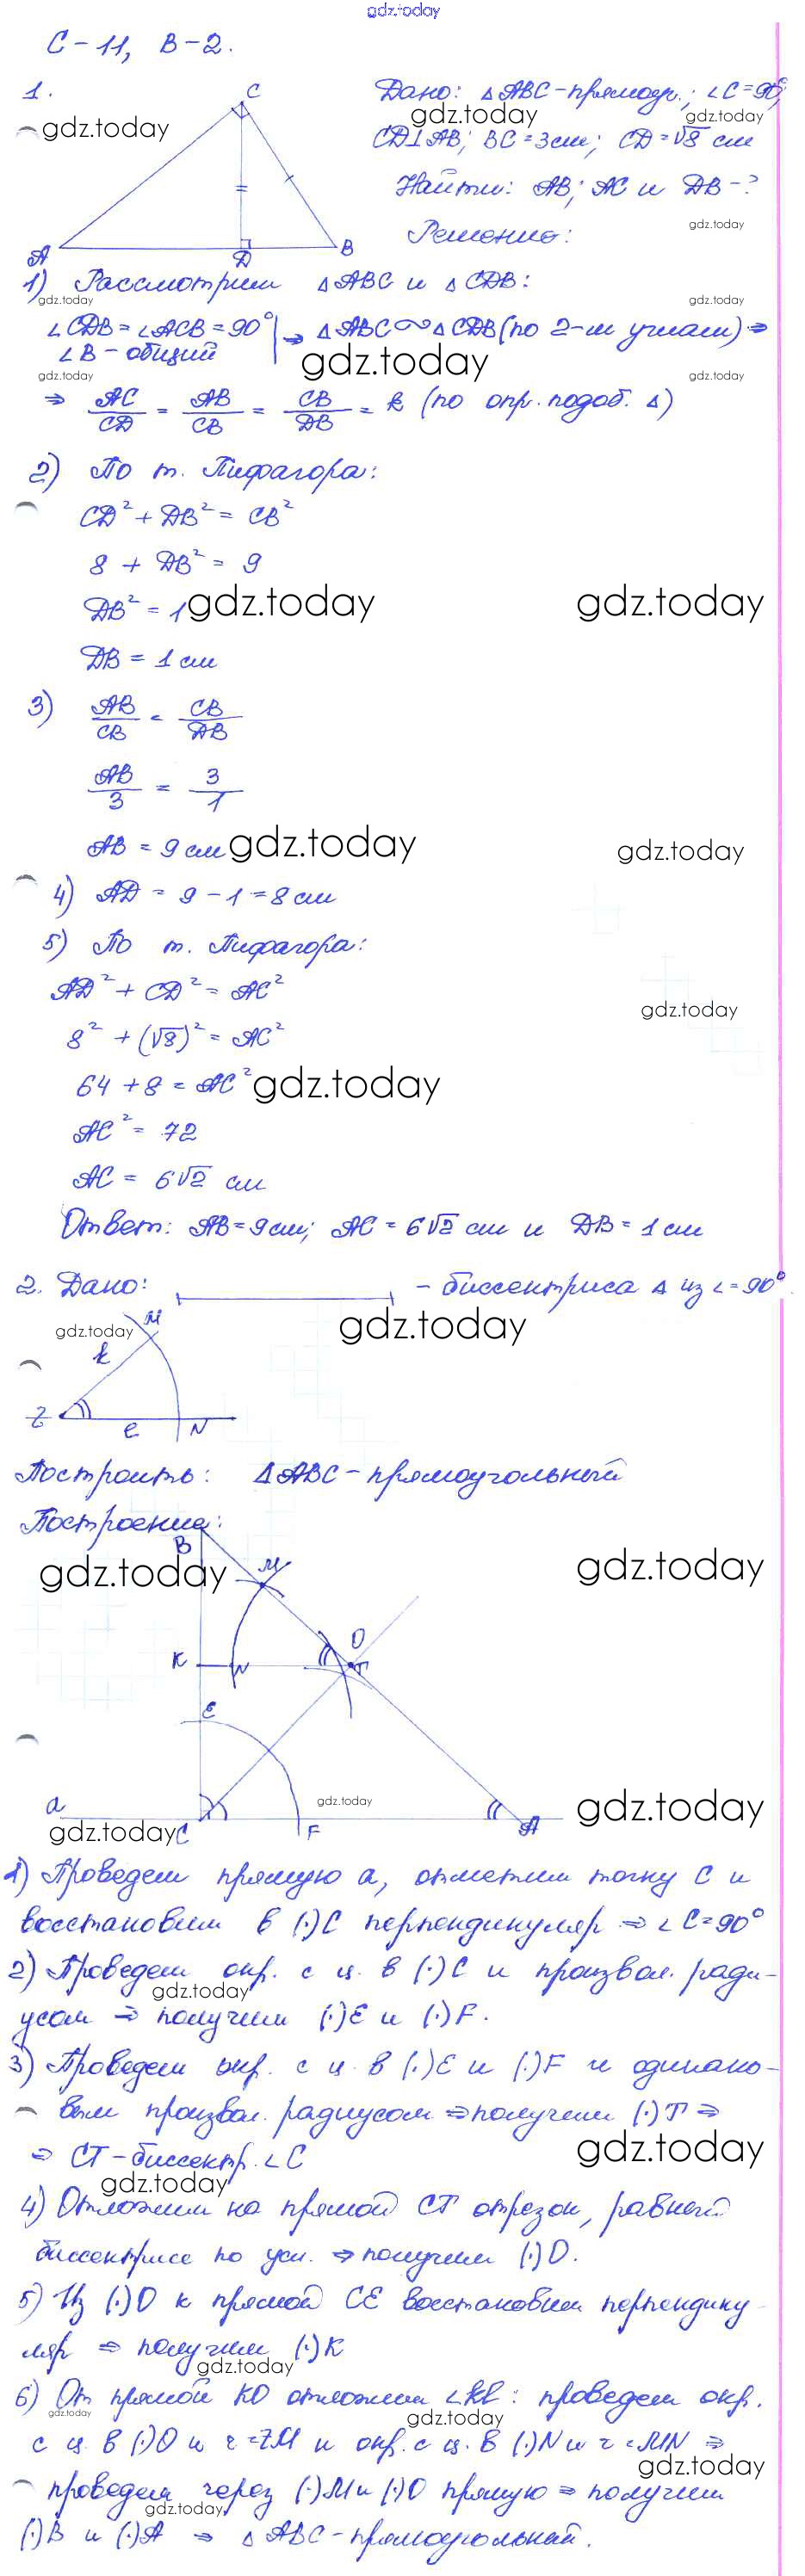 gdz.today
С-11, В-2.
1.
C
A
D
B
Дано: △ABC-прямоуг.; ∠C=90°;
gdz.today gdz.today gdz.today
CD⊥AB; BC=3см; CD=√8 см
Найти: AB; AC и DB-?
gdz.today
Решение:
1) Рассмотрим △ABC и △CDB:
gdz.today gdz.today
∠CDB=∠ACB=90° | ⇒ △ABC∾△CDB(по 2-м углам)⇒
∠B-общий
gdz.today gdz.today gdz.today
⇒ AC/CD = AB/CB = CB/DB = k (по опр. подоб. △)
2) По т. Пифагора:
CD² + DB² = CB²
8 + DB² = 9
DB² = 1
gdz.today gdz.today
DB = 1 см
3) AB/CB = CB/DB
AB/3 = 3/1
AB = 9 см
gdz.today gdz.today
4) AD = 9-1=8 см
5) По т. Пифагора:
AD² + CD² = AC²
gdz.today
8² + (√8)² = AC²
64 + 8 = AC²
gdz.today
AC² = 72
AC = 6√2 см
Ответ: AB=9см; AC=6√2 см и DB=1см
2. Дано: - биссектриса △ из ∠=90°.
gdz.today gdz.today
M
k
Z
l
N
Построить: △ABC-прямоугольный
Построение:
B
gdz.today gdz.today
M
O
K
N
T
E
a
gdz.today gdz.today
gdz.today
C
F
A
1) Проведем прямую a, отметим точку C и
восстановим в (·)C перпендикуляр ⇒ ∠C=90°
2) Проведем окр. с ц. в (·)C и произвол. ради-
gdz.today
усом ⇒ получим (·)E и (·)F.
3) Проведем окр. с ц. в (·)E и (·)F и одинако-
вым произвол. радиусом ⇒ получим (·)T ⇒
⇒ CT-биссектр. ∠C
gdz.today
gdz.today
4) Отложим на прямой CT отрезок, равный
биссектрисе по усл. ⇒ получим (·)O.
5) Из (·)O к прямой CE восстановим перпендику-
ляр ⇒ получим (·)K
gdz.today
6) От прямой KO отложим ∠kl: проведем окр.
gdz.today gdz.today
с ц. в (·)O и r=ZM и окр. с ц. в (·)N и r=MN ⇒
gdz.today
проведем через (·)M и (·)O прямую ⇒ получим
gdz.today
(·)B и (·)A ⇒ △ABC-прямоугольный.